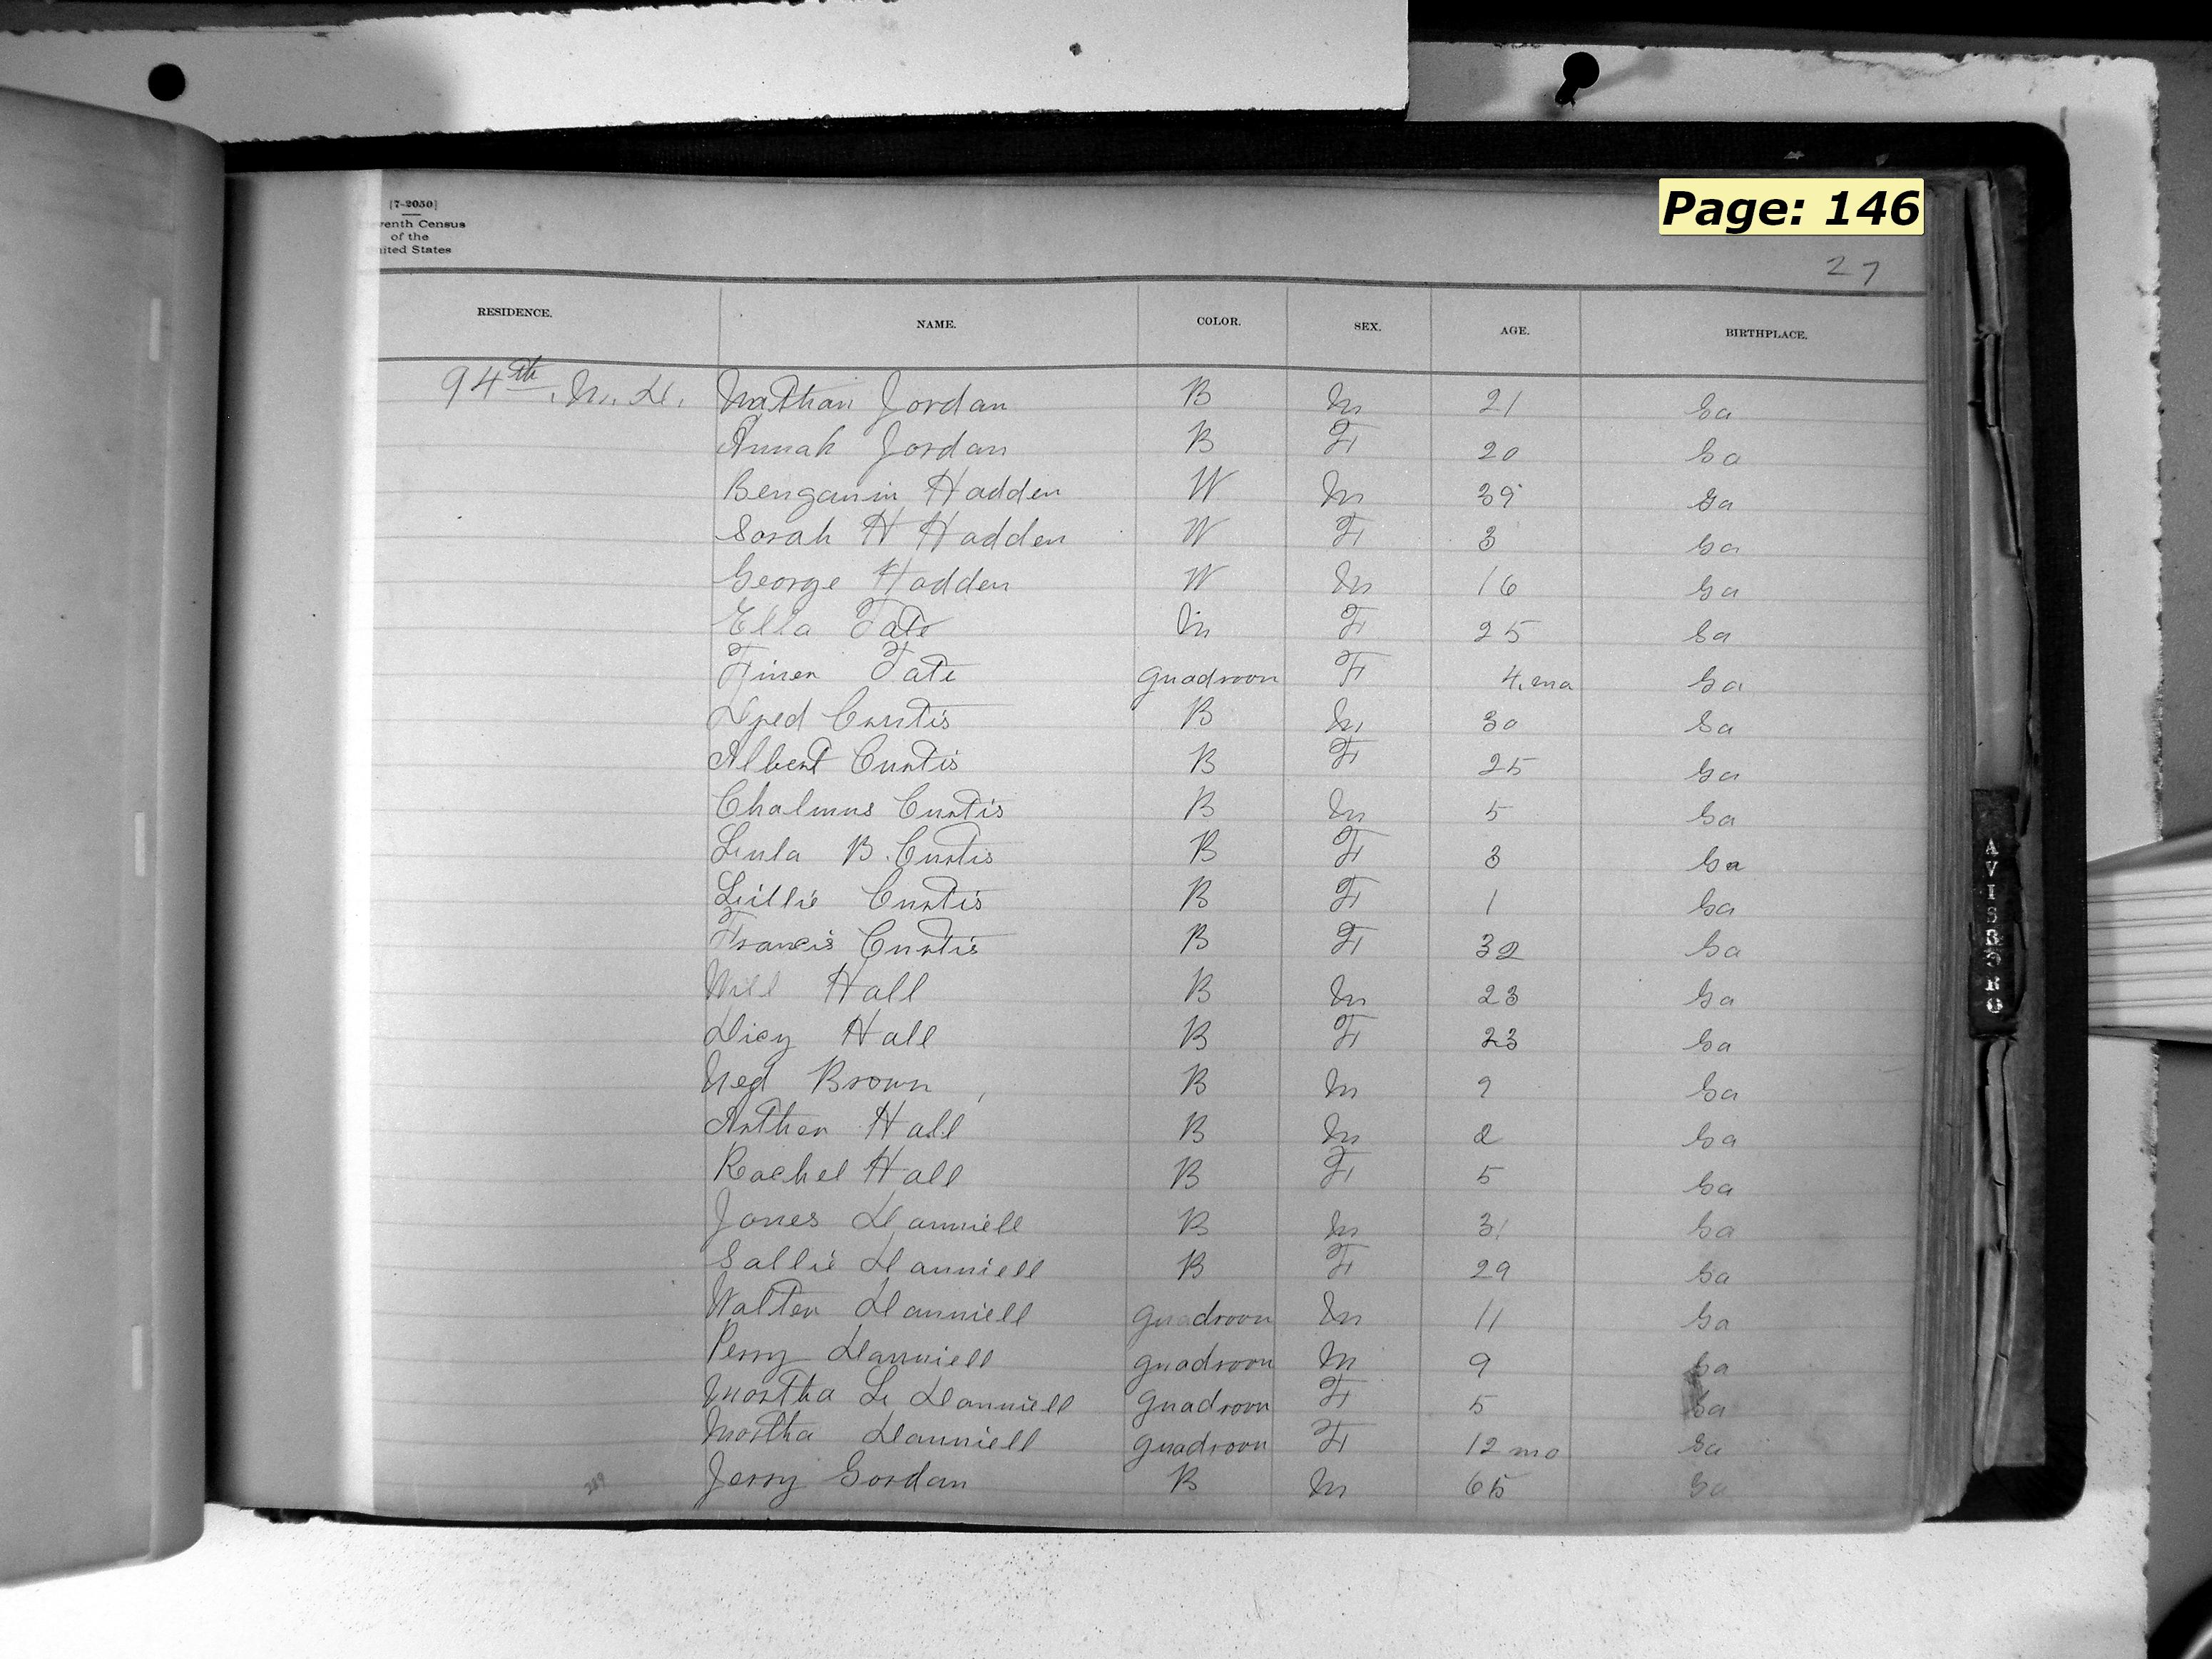 Page: 146
[7-2050]
venth Census
of the
ited States
27
RESIDENCE. NAME. COLOR. SEX. AGE. BIRTHPLACE.
94th. M. D. Nathan Jordan B M 21 Ga
Annah Jordan B F 20 Ga
Bengamin Hadden W M 39 Ga
Sarah H Hadden W F 3 Ga
George Hadden W M 16 Ga
Ella Tate M F 25 Ga
Tate quadroon F 4.mo Ga
Curtis B M 30 Ga
Albert Curtis B F 25 Ga
Chalmus Curtis B M 5 Ga
Lula B. Curtis B F 3 Ga
Lillie Curtis B F 1 Ga
Francis Curtis B F 32 Ga
Will Hall B M 23 Ga
Dicy Hall B F 23 Ga
Ned Brown B M 9 Ga
Arther Hall B M 2 Ga
Rachel Hall B F 5 Ga
Jones Danniell B M 31 Ga
Sallie Danniell B F 29 Ga
Walter Danniell quadroon M 11 Ga
Perry Danniell quadroon M 9 Ga
Martha L Danniell quadroon F 5 Ga
Martha Danniell quadroon F 12 mo Ga
Jerry Gordan B M 65 Ga
289